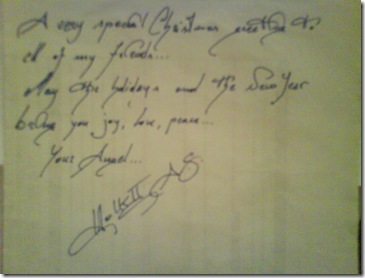 A very special Christmas greeting to
all of my friends...
May the holidays and the New Year
bring you joy, love, peace...
Your Angel...